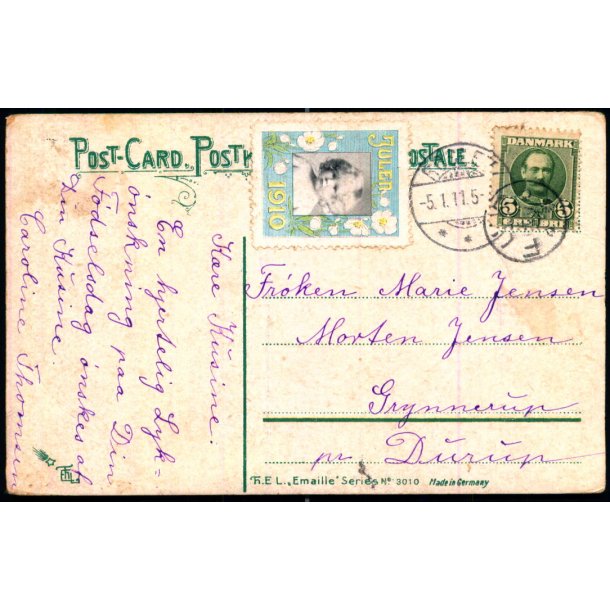 POST-CARD. POSTK
OSTALE.
JULEN
1910
-5.1.11.5-
DANMARK
5
Kære Kusine.
En hjertelig Lyk=
ønskning paa Din
Fødselsdag ønskes af
Din Kusine.
Caroline Thomsen
Frøken Marie Jensen
Morten Jensen
Grynnerup
pr Durup
H.E.L. „Emaille" Series No 3010 Made in Germany